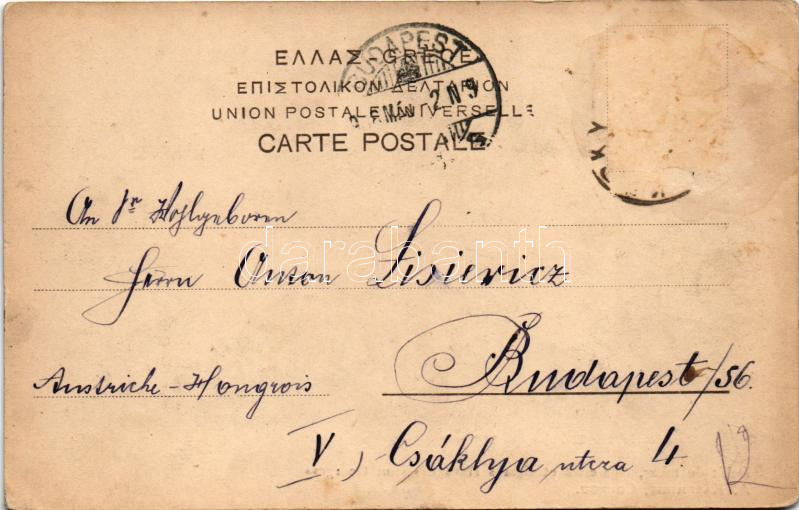 ΕΛΛΑΣ-GRÈCE
ΕΠΙΣΤΟΛΙΚΟΝ ΔΕΛΤΑΡΙΟΝ
UNION POSTALE UNIVERSELLE
CARTE POSTALE
BUDAPEST
2 N 9
An Sr Wohlgeboren
Herrn Anton Lisievicz
Budapest/56.
Autriche-Hongrois
V.) Csáklya utcza 4.
darabanth